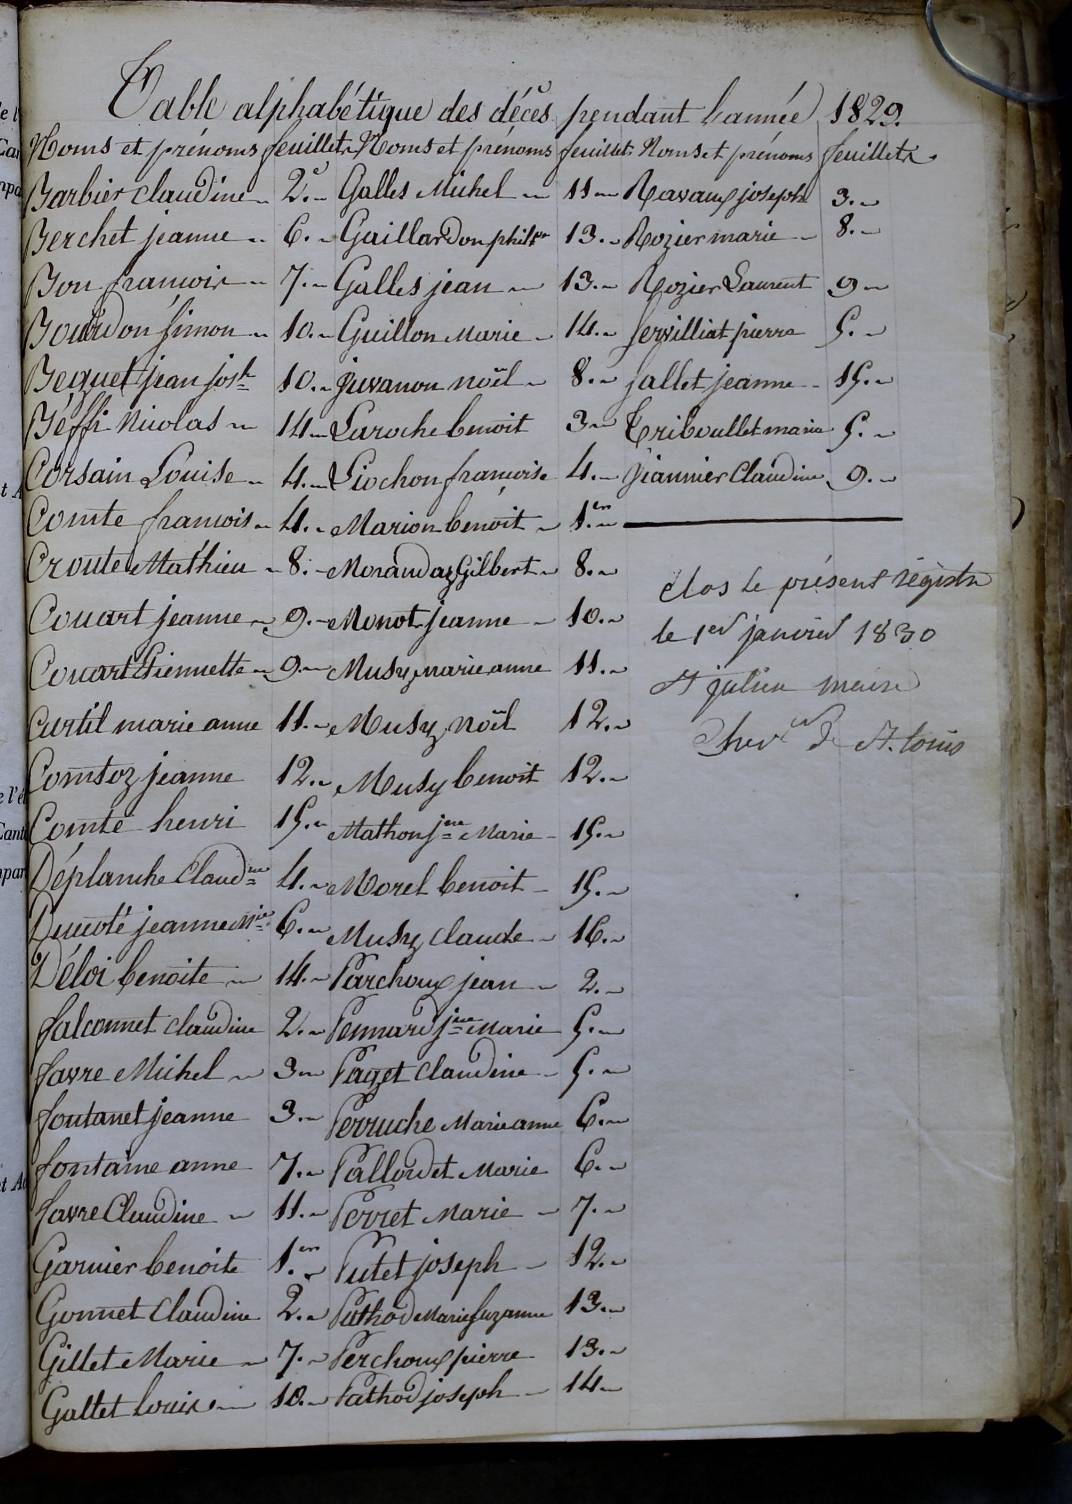 Table alphabétique des décès pendant l'année 1829.
Noms et prénoms feuillets Noms et prénoms feuillets Noms et prénoms feuillets
Barbier claudine 2.
Berchet jeanne 6.
Bon francois 7.
Bourdon simon 10.
Bequet jean josh 10.
Béffi Nicolas 14
Corsain Louise 4.
Comte francois 4.
Croute Mathieu 8.
Couart jeanne 9.
Couart Etiennette 9
Curtil marie anne 11.
Comtoz jeanne 12.
Comte henri 15.
Déplanche Claudne 4.
Ducoté jeanne Mie 6.
Déloi benoite 14.
falconnet claudine 2.
favre Michel 3
fontanet jeanne 3.
fontaine anne 7.
favre Claudine 11.
Garnier benoite 1.er
Gonnet Claudine 2.
Gillet Marie 7.
Gallet louise 10.
Galles Michel 11
Gaillardon philpe 13.
Galles jean 13.
Guillon Marie 14.
juvanon noël 8.
Laroche benoit 3
Liochon francoise 4.
Marion benoit 1.er
Morandaz Gilbert 8.
Monot jeanne 10.
Musy marie anne 11.
Musy noël 12.
Musy benoit 12.
Mathon jne Marie 15.
Morel benoit 15.
Musy claude 16.
Parchoux jean 2.
Pennard jne Marie 5.
Paget claudine 5.
Perruche Marie anne 6.
Pallordet Marie 6.
Perret Marie 7.
Putet joseph 12.
Pathod Marie suzanne 13.
Perchoux pierre 13.
Pathod joseph 14
Ravaux joseph 3.
Rozier marie 8.
Rozier Laurent 9
servilliat pierre 5.
sallet jeanne 15.
Triboullet marie 5.
jiannier Claudine 9.
clos le présent régistre
le 1er janvier 1830
St julien maire
Chevr de St. louis